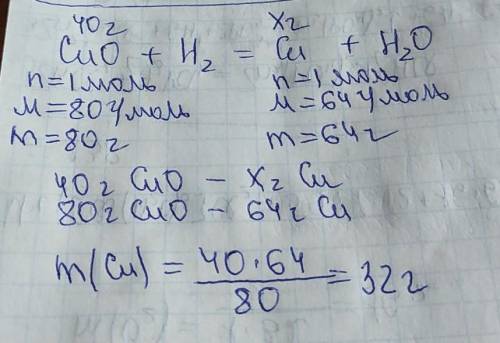 40г Xг
CuO + H₂ = Cu + H₂O
n=1моль n=1моль
M=80г/моль M=64г/моль
m=80г m=64г
40г CuO – Xг Cu
80г CuO – 64г Cu
m(Cu) = 40·64 / 80 = 32г